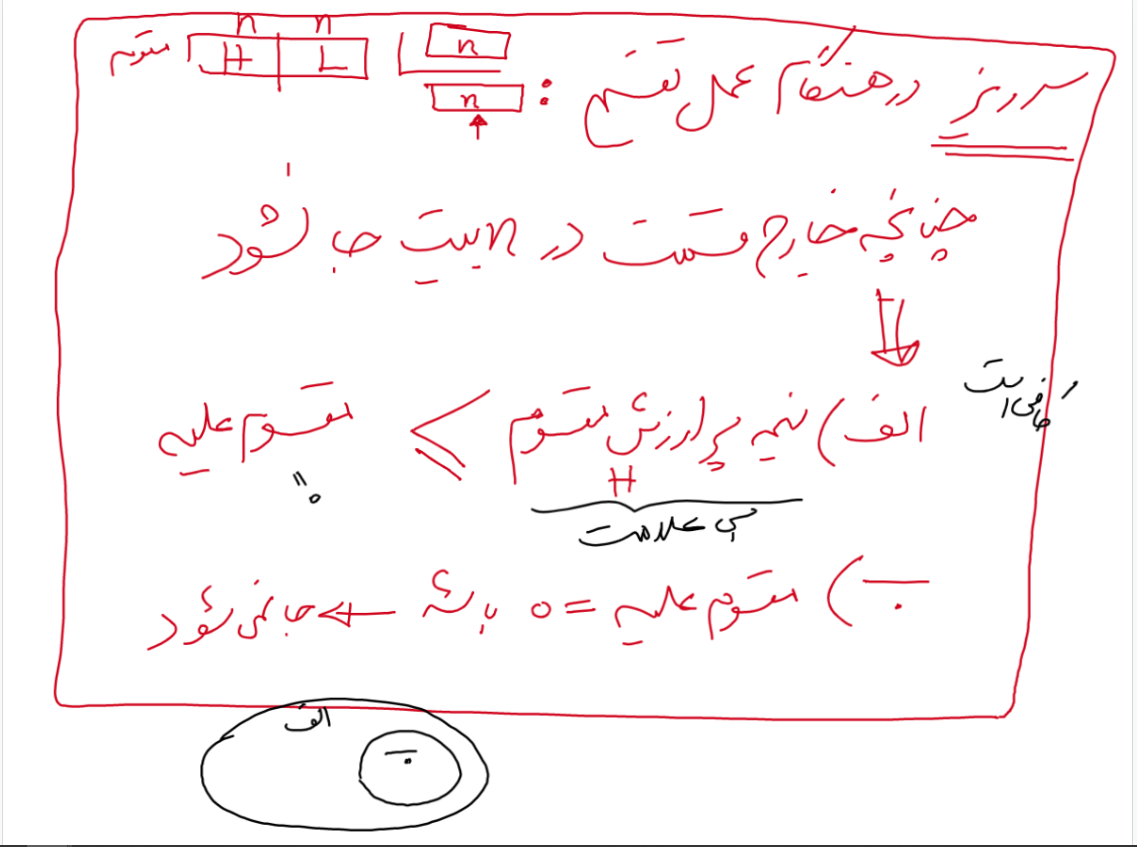 سرریز در هنگام عمل تقسیم :
n
n
n n
H L
مقسوم
چنانچه خارج قسمت در n بیت جا نشود
الف) نیمه پرارزش مقسوم ≥ مقسوم علیه
کافی است
H
بی علامت
"
0
ب) مقسوم علیه = 0 باشد ← جا نمی شود
الف
ب